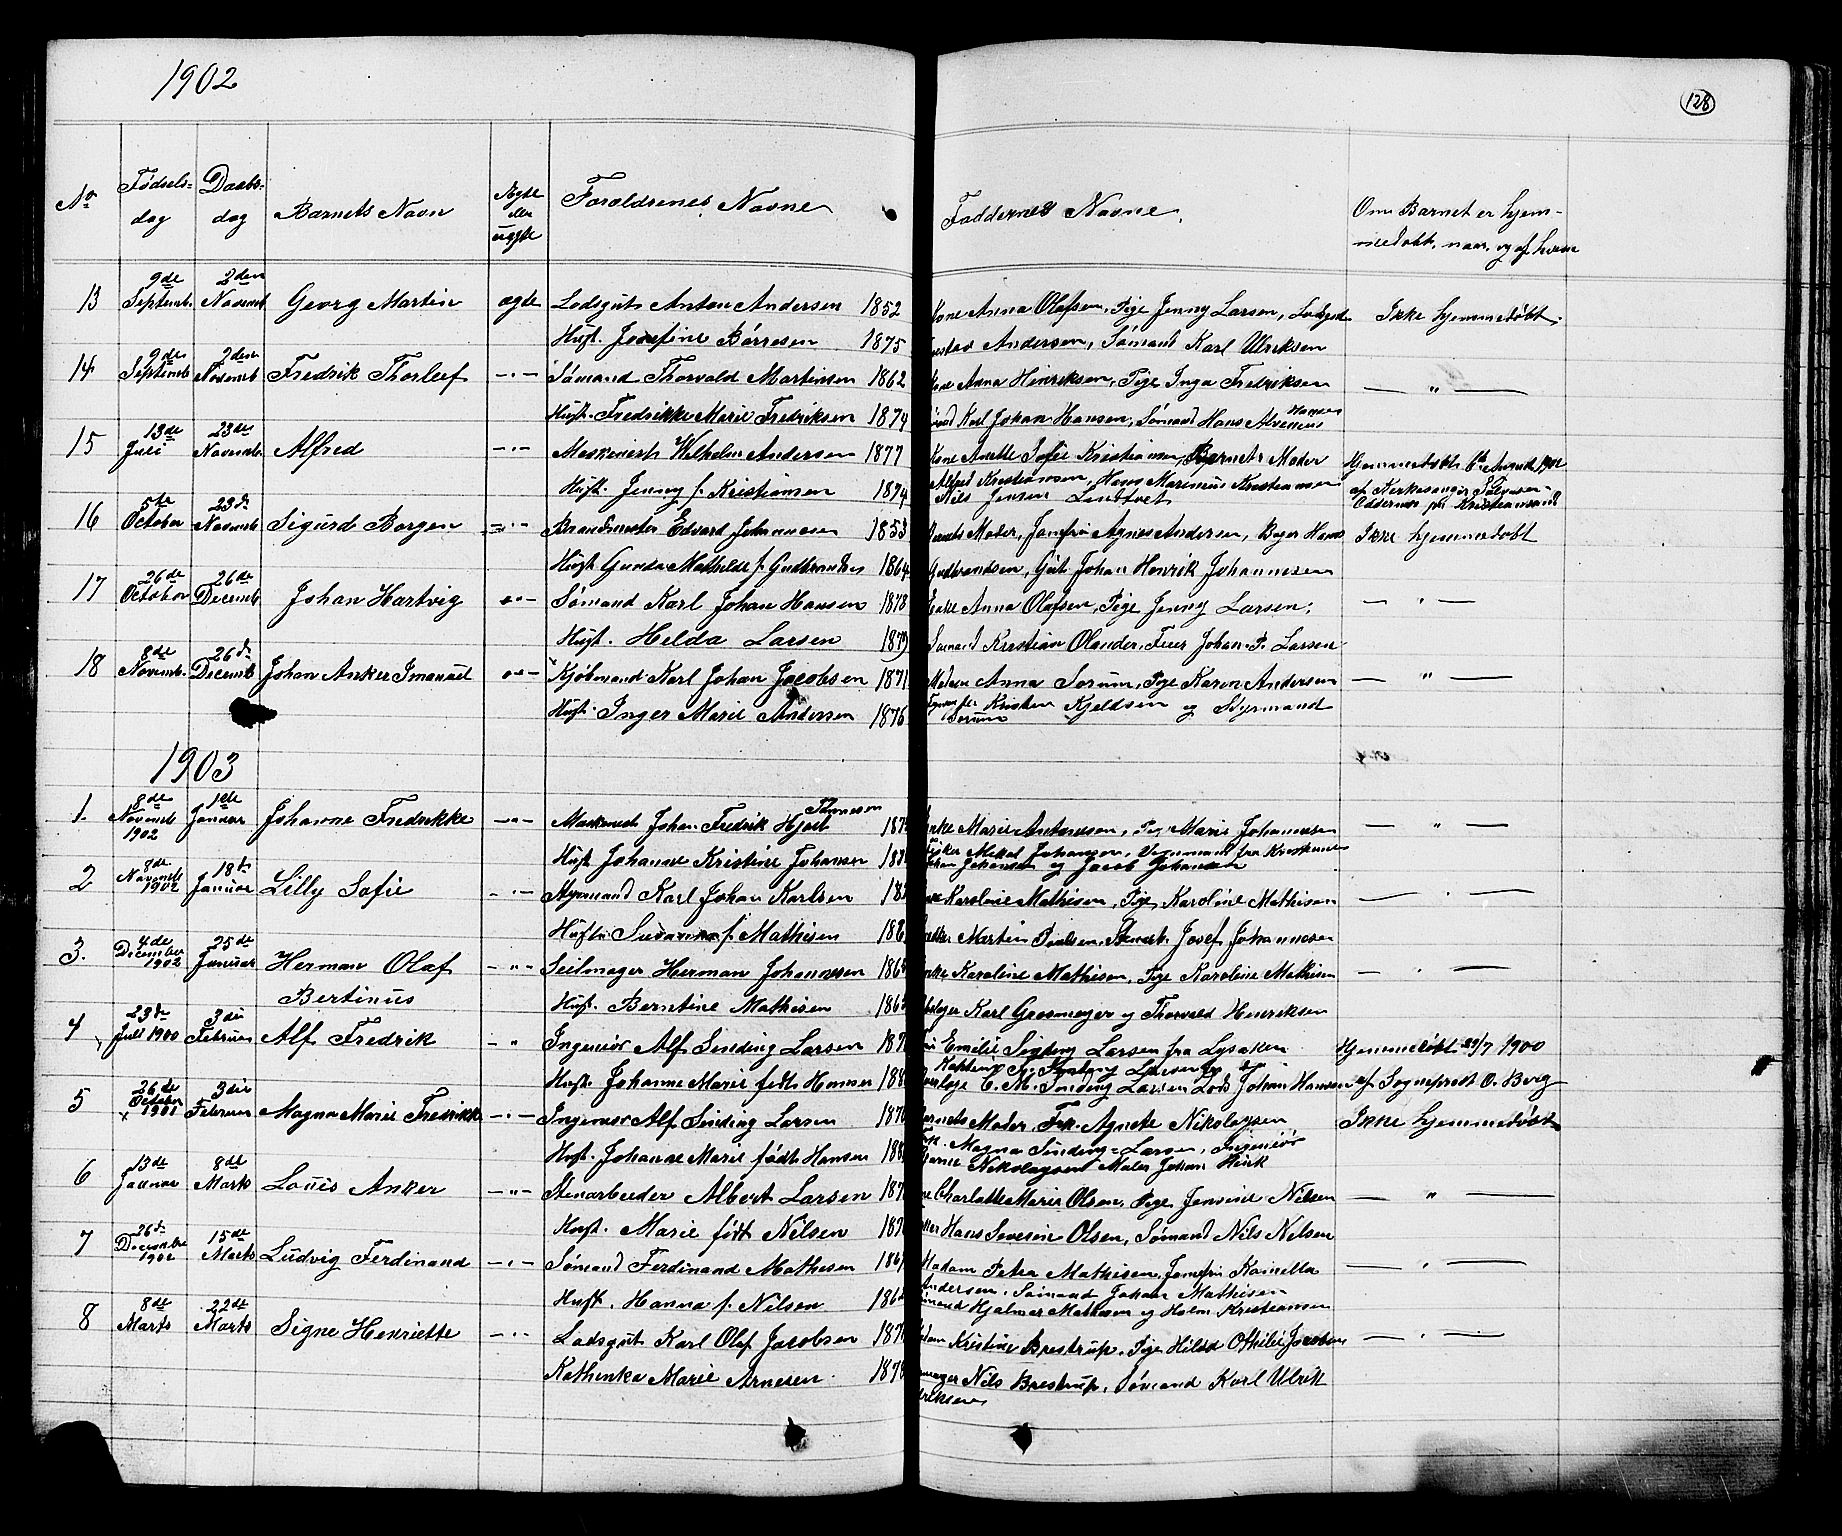 1902
128
No Fødselsdag Daabsdag Barnets Navn Ægte eller uægte Forældrenes Navne Faddernes Navne Om Barnet er hjemmedøbt, naar, og af hvem
13 9de Septemb. 2den Novemb. Georg Martin ægte Lodsgut Anton Andersen 1852 Kone Anna Olafsen, Pige Jenny Larsen, Lodsgut Ikke hjemmedøbt.
Hust. Josefine Børresen 1875 Andersen, Sømand Karl Ulriksen
14 9de Septemb 2den Novemb Fredrik Thorleif —"— Sømand Thorvald Martinsen 1862 Kone Anna Henriksen, Pige Inga Fredriksen — " —
Hust. Fredrikke Marie Fredriksen 1874 Karl Johan Hansen, Sømand Hans Hansen
15 13de Juli 23de Novemb. Alfred —"— Maskinist Wilhelm Andersen 1877 Kone Anette Sofie Kristiansen, Barnets Moder Hjemmedøbt 1902
Hust. Jenny f. Kristiansen 1874 Alfred Kristiansen, Hans Marinius Kristiansen af Kirkesanger
Nils Jensen Lindtvet Oddernes pr Kristiansand
16 5te October 23de Novemb Sigurd Borgen —"— Brandmester Edvard Johannesen 1853 Barnets Moder, Jomfru Agnes Andersen, Hans Ikke hjemmedøbt
Hust Gunda Mathilde f. Gudbrandsen 1864 Gudbrandsen, Gut Johan Henrik Johannesen
17 26de October 26de Decemb Johan Hartvig —"— Sømand Karl Johan Hansen 1878 Enke Anna Olafsen, Pige Jenny Larsen, — " —
Hust. Helda Larsen 1879 Sømand Kristian Olander, Johan P. Larsen
18 8de Novemb. 26de Decemb Johan Anker Imanuel —"— Kjøbmand Karl Johan Jacobsen 1871 Madam Anna Sørum, Pige Karen Andersen — " —
Hust. Inger Marie Andersen 1876 Kristen Kjeldsen og Styrmand
Sørum
1903
1. 8de Novemb 1902 1ste Januar Johanne Fredrikke —"— Maskinist Johan Fredrik Hjort Thomesen 187 Enke Marie Antonesen, Pige Marie Johannesen — " —
Hust Johanne Kristine Johansen 188 Fisker Mikal Johansen, fra
Johan Johansen og Jacob Johansen
2 8de Novemb 1902 18de Januar Lilly Sofie —"— Styrmand Karl Johan Karlsen 18 Karoline Mathisen, Pige Karoline Mathisen — " —
Hustr. Susanna f. Mathisen 188 Martin Poulsen, Stuert Josef Johannesen
3. 4de December 1902 25de Januar Herman Olaf —"— Seilmager Herman Johannesen 186 Enke Karoline Mathisen, Pige Karoline Mathisen — " —
Bertinus Hust. Berntine Mathisen 186 Karl Grosmeyer og Thorvald Henriksen
4 23de Juli 1900 3die Februar Alf Fredrik —" Ingeniør Alf Sinding Larsen 187 Emilie Sinding Larsen fra Lysaker Hjemmedøbt 29/7 1900
Hust. Johanne Marie født Hansen 188 Kaptein Sinding Larsen og
C. M. Sinding Larsen Lods Johan Hansen af Sogneprest O. Berg
5 26de October 1901 3die Februar Magna Marie Fredrikke —"— Ingeniør Alf Sinding Larsen 187 Barnets Moder, Frk. Agnete Nikolaysen Ikke hjemmedøbt
Hust. Johanne Marie født Hansen 188 Frk. Magna Sinding-Larsen, Ingeniør
Nikolaysen Maler Johan
6 13de Januar 8de Marts Louis Anker —"— Stenarbeider Albert Larsen 187 Charlotte Marie Olsen, Pige Jensine Nilsen — " —
Hust. Marie født Nilsen 187 Hans Severin Olsen, Sømand Nils Nilsen
7 26de December 1902 15de Marts Ludvig Ferdinand —"— Sømand Ferdinand Mathesen 186 Madam Petra Mathisen, Jomfru Kamella — " —
Hust. Hanna f. Nilsen 186 Andersen, Sømand Johan Mathisen
Hjalmer Mathisen og Holm Kristiansen
8 8de Marts 22de Marts Signe Henriette —"— Lodsgut Karl Olaf Jacobsen 187 Madam Kristine Brestrup, Pige Hilda Othilie Jacobsen — " —
Kathinka Marie Arnesen 187 Nils Brestrup, Sømand Karl Ulrik